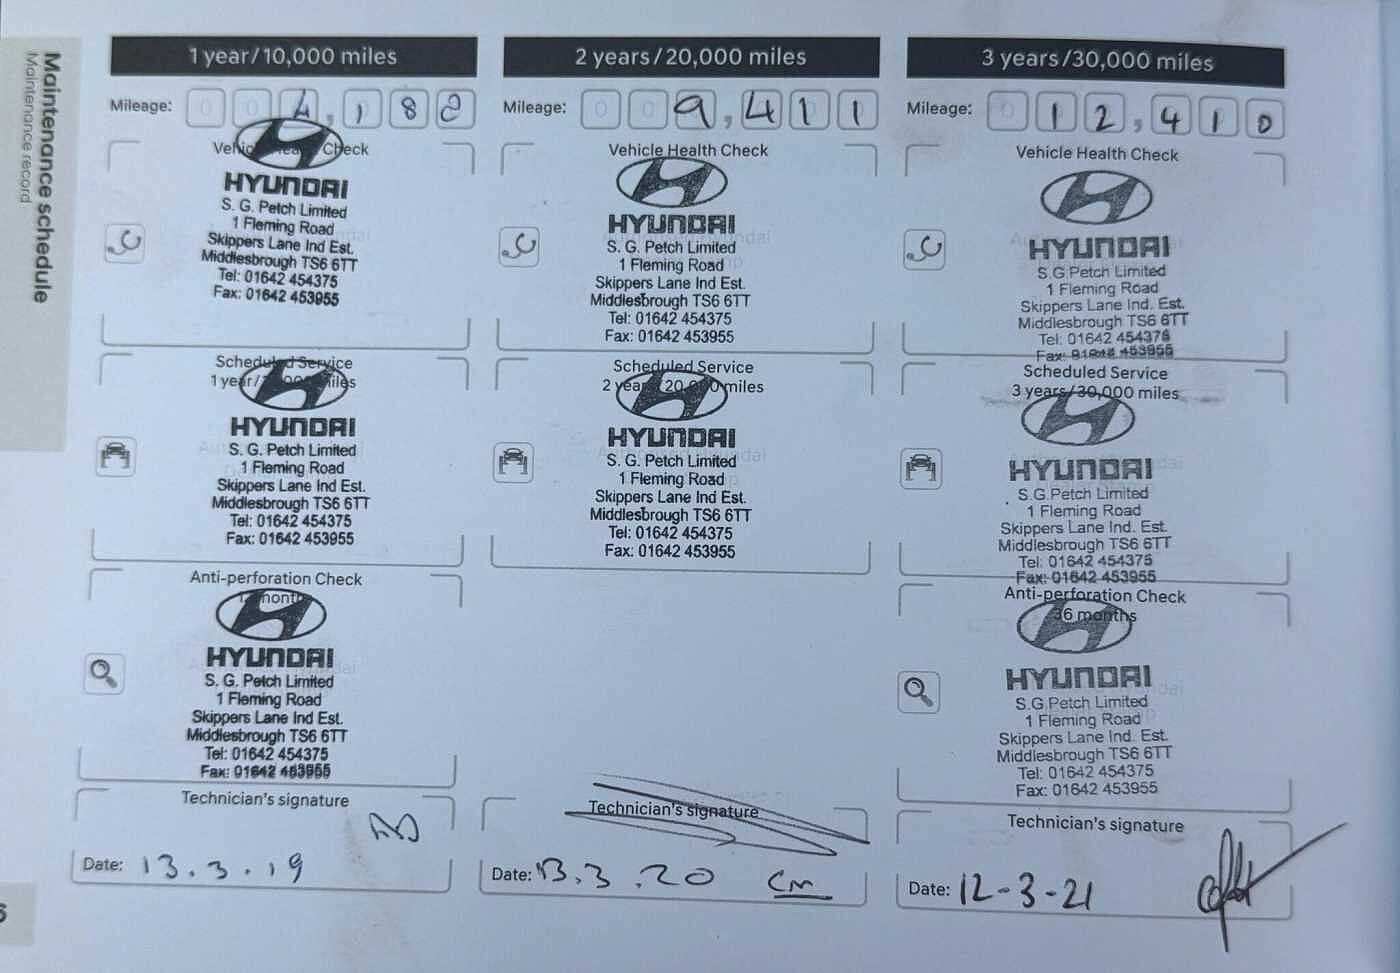 Maintenance schedule
Maintenance record
1 year/10,000 miles
Mileage: 0 0 4,1 8 2
Vehicle Health Check
HYUNDAI
S. G. Petch Limited
1 Fleming Road
Skippers Lane Ind Est.
Middlesbrough TS6 6TT
Tel: 01642 454375
Fax: 01642 453955
Scheduled Service
1 year/10,000 miles
HYUNDAI
S. G. Petch Limited
1 Fleming Road
Skippers Lane Ind Est.
Middlesbrough TS6 6TT
Tel: 01642 454375
Fax: 01642 453955
Anti-perforation Check
12 months
HYUNDAI
S. G. Petch Limited
1 Fleming Road
Skippers Lane Ind Est.
Middlesbrough TS6 6TT
Tel: 01642 454375
Fax: 01642 453955
Technician's signature
Date: 13.3.19
2 years/20,000 miles
Mileage: 0 0 9,4 1 1
Vehicle Health Check
HYUNDAI
S. G. Petch Limited
1 Fleming Road
Skippers Lane Ind Est.
Middlesbrough TS6 6TT
Tel: 01642 454375
Fax: 01642 453955
Scheduled Service
2 years/20,000 miles
HYUNDAI
S. G. Petch Limited
1 Fleming Road
Skippers Lane Ind Est.
Middlesbrough TS6 6TT
Tel: 01642 454375
Fax: 01642 453955
Technician's signature
Date: 13.3.20 cm
3 years/30,000 miles
Mileage: 0 1 2,4 1 0
Vehicle Health Check
HYUNDAI
S.G.Petch Limited
1 Fleming Road
Skippers Lane Ind. Est.
Middlesbrough TS6 6TT
Tel: 01642 454375
Fax: 01642 453955
Scheduled Service
3 years/30,000 miles
HYUNDAI
S.G.Petch Limited
1 Fleming Road
Skippers Lane Ind. Est.
Middlesbrough TS6 6TT
Tel: 01642 454375
Fax: 01642 453955
Anti-perforation Check
36 months
HYUNDAI
S.G.Petch Limited
1 Fleming Road
Skippers Lane Ind. Est.
Middlesbrough TS6 6TT
Tel: 01642 454375
Fax: 01642 453955
Technician's signature
Date: 12-3-21